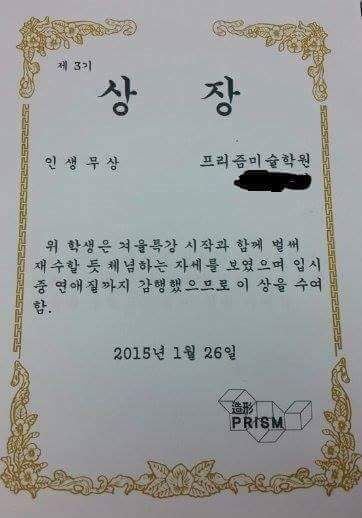 제 3기
상 장
인생무상 프리즘미술학원
위 학생은 겨울특강 시작과 함께 벌써
재수할 듯 체념하는 자세를 보였으며 입시
중 연애질까지 감행했으므로 이 상을 수여
함.
2015년 1월 26일
造形
PRISM